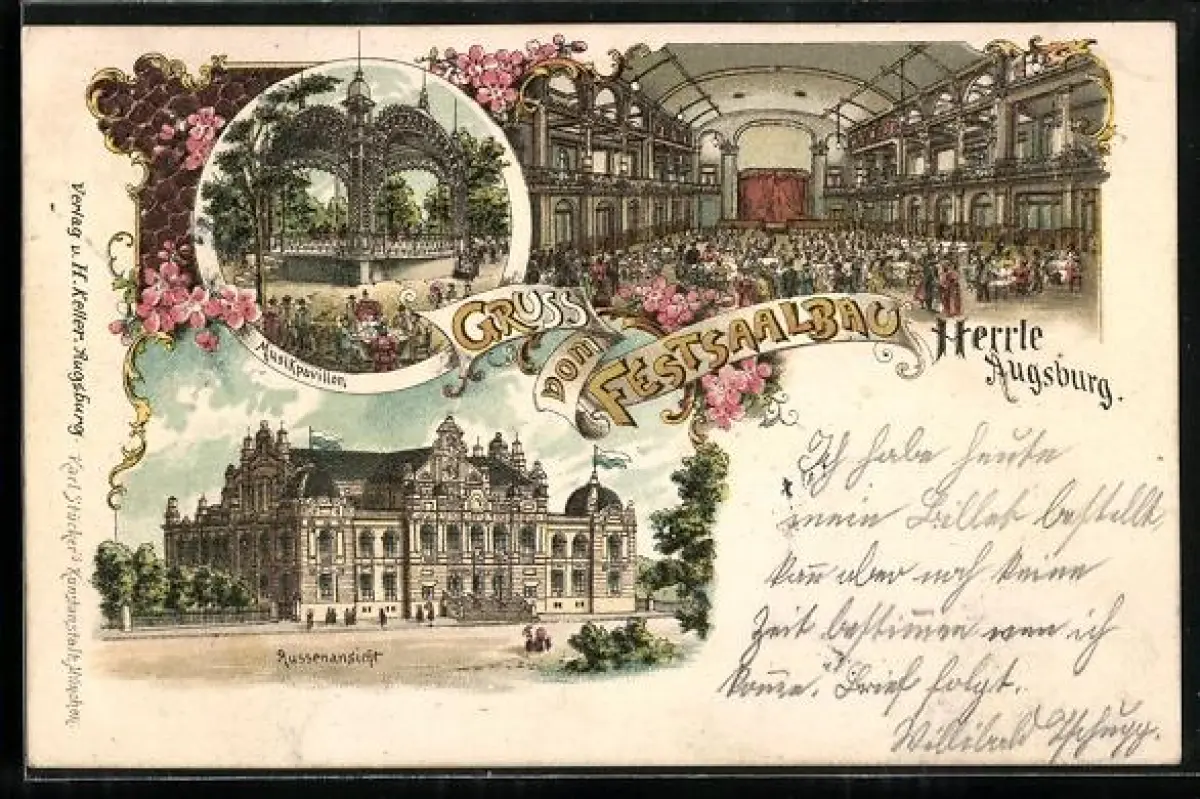 Verlag v. H. Keller, Augsburg. Karl Stücker's Kunstanstalt, München.
Musikpavillon
GRUSS
VOM
FESTSAALBAU
Herrle
Augsburg.
Aussenansicht
Ich habe heute
mein Billet bestellt
kan̅ aber noch keine
Zeit bestim̅en wen ich
kom̅e. Brief folgt.
Willibald Tschupp.